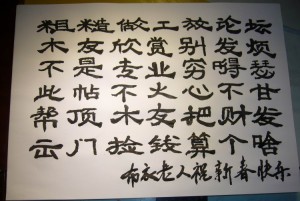 粗糙做工放论坛
木友欣赏别发烦
不是专业穷嘚瑟
此帖不火心不甘
帮顶木友把财发
出门捡钱算个啥
布衣老人祝新春快乐